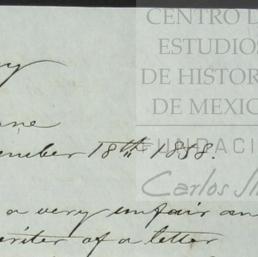 CENTRO D
ESTUDIOS
DE HISTOR
DE MEXIC
FUNDACI
Carlos Sl
ember 18th 1858.
a very unfair an
writer of a letter